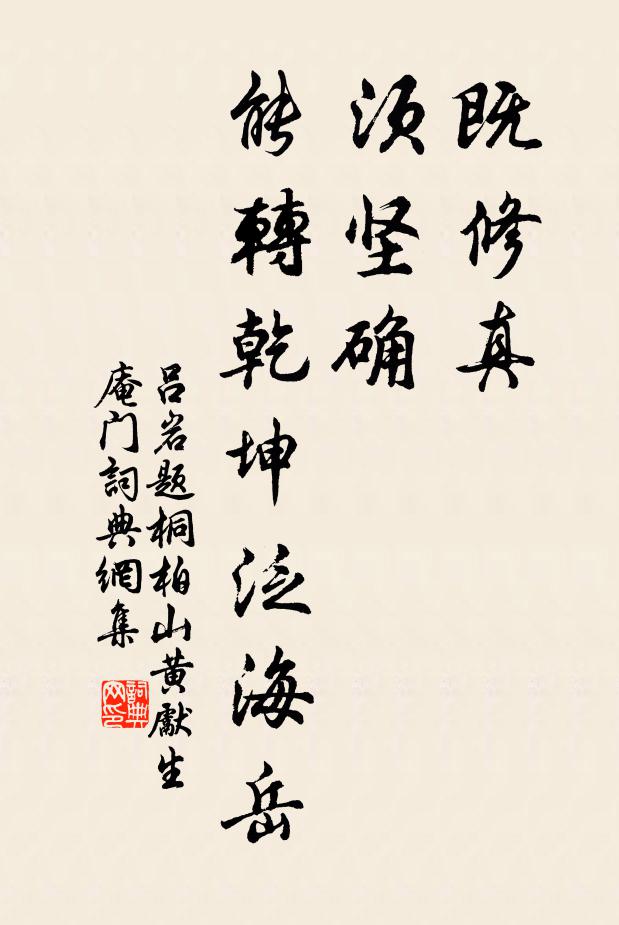 既修真
须坚确
能轉乾坤泛海岳
吕岩题桐柏山黄獻生
庵门詞典網集
詞典
网印